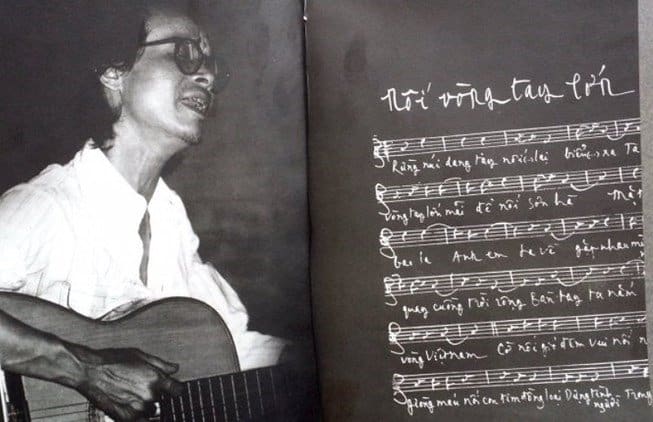 nối vòng tay lớn
Rừng núi dang tay nối lại biển xa Ta
vòng tay lớn mãi để nối sơn hà
bao la Anh em ta về gặp nhau
quay cuồng trời rộng bàn tay ta nắm
vòng Việt nam Cờ nối gió đêm vui nối
giòng máu nối con tim đồng loại Dựng tình người Trong